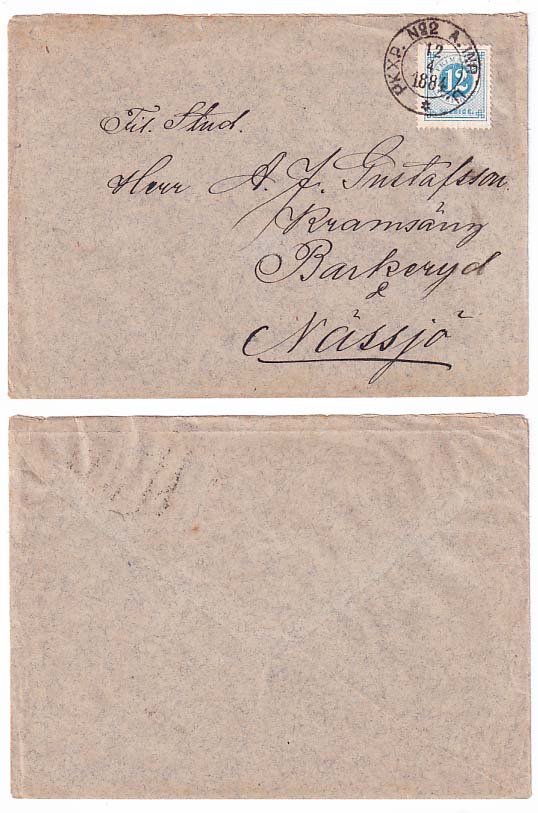 PKXP. No2 A. INR
12
4
1884
12
SVERIGE
Fil. Stud.
Herr A. J. Gustafsson.
Kramsäng
Barkeryd
Nässjö